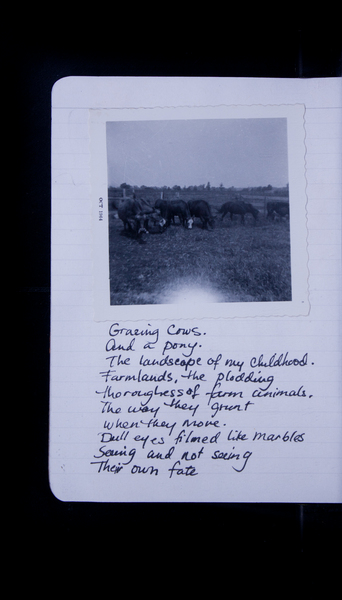 OCT
Grazing Cows.
And a pony.
The landscape of my childhood.
Farmlands, the plodding
thoroughness of farm animals.
The way they grunt
when they move.
Dull eyes filmed like marbles
Seeing and not seeing
Their own fate